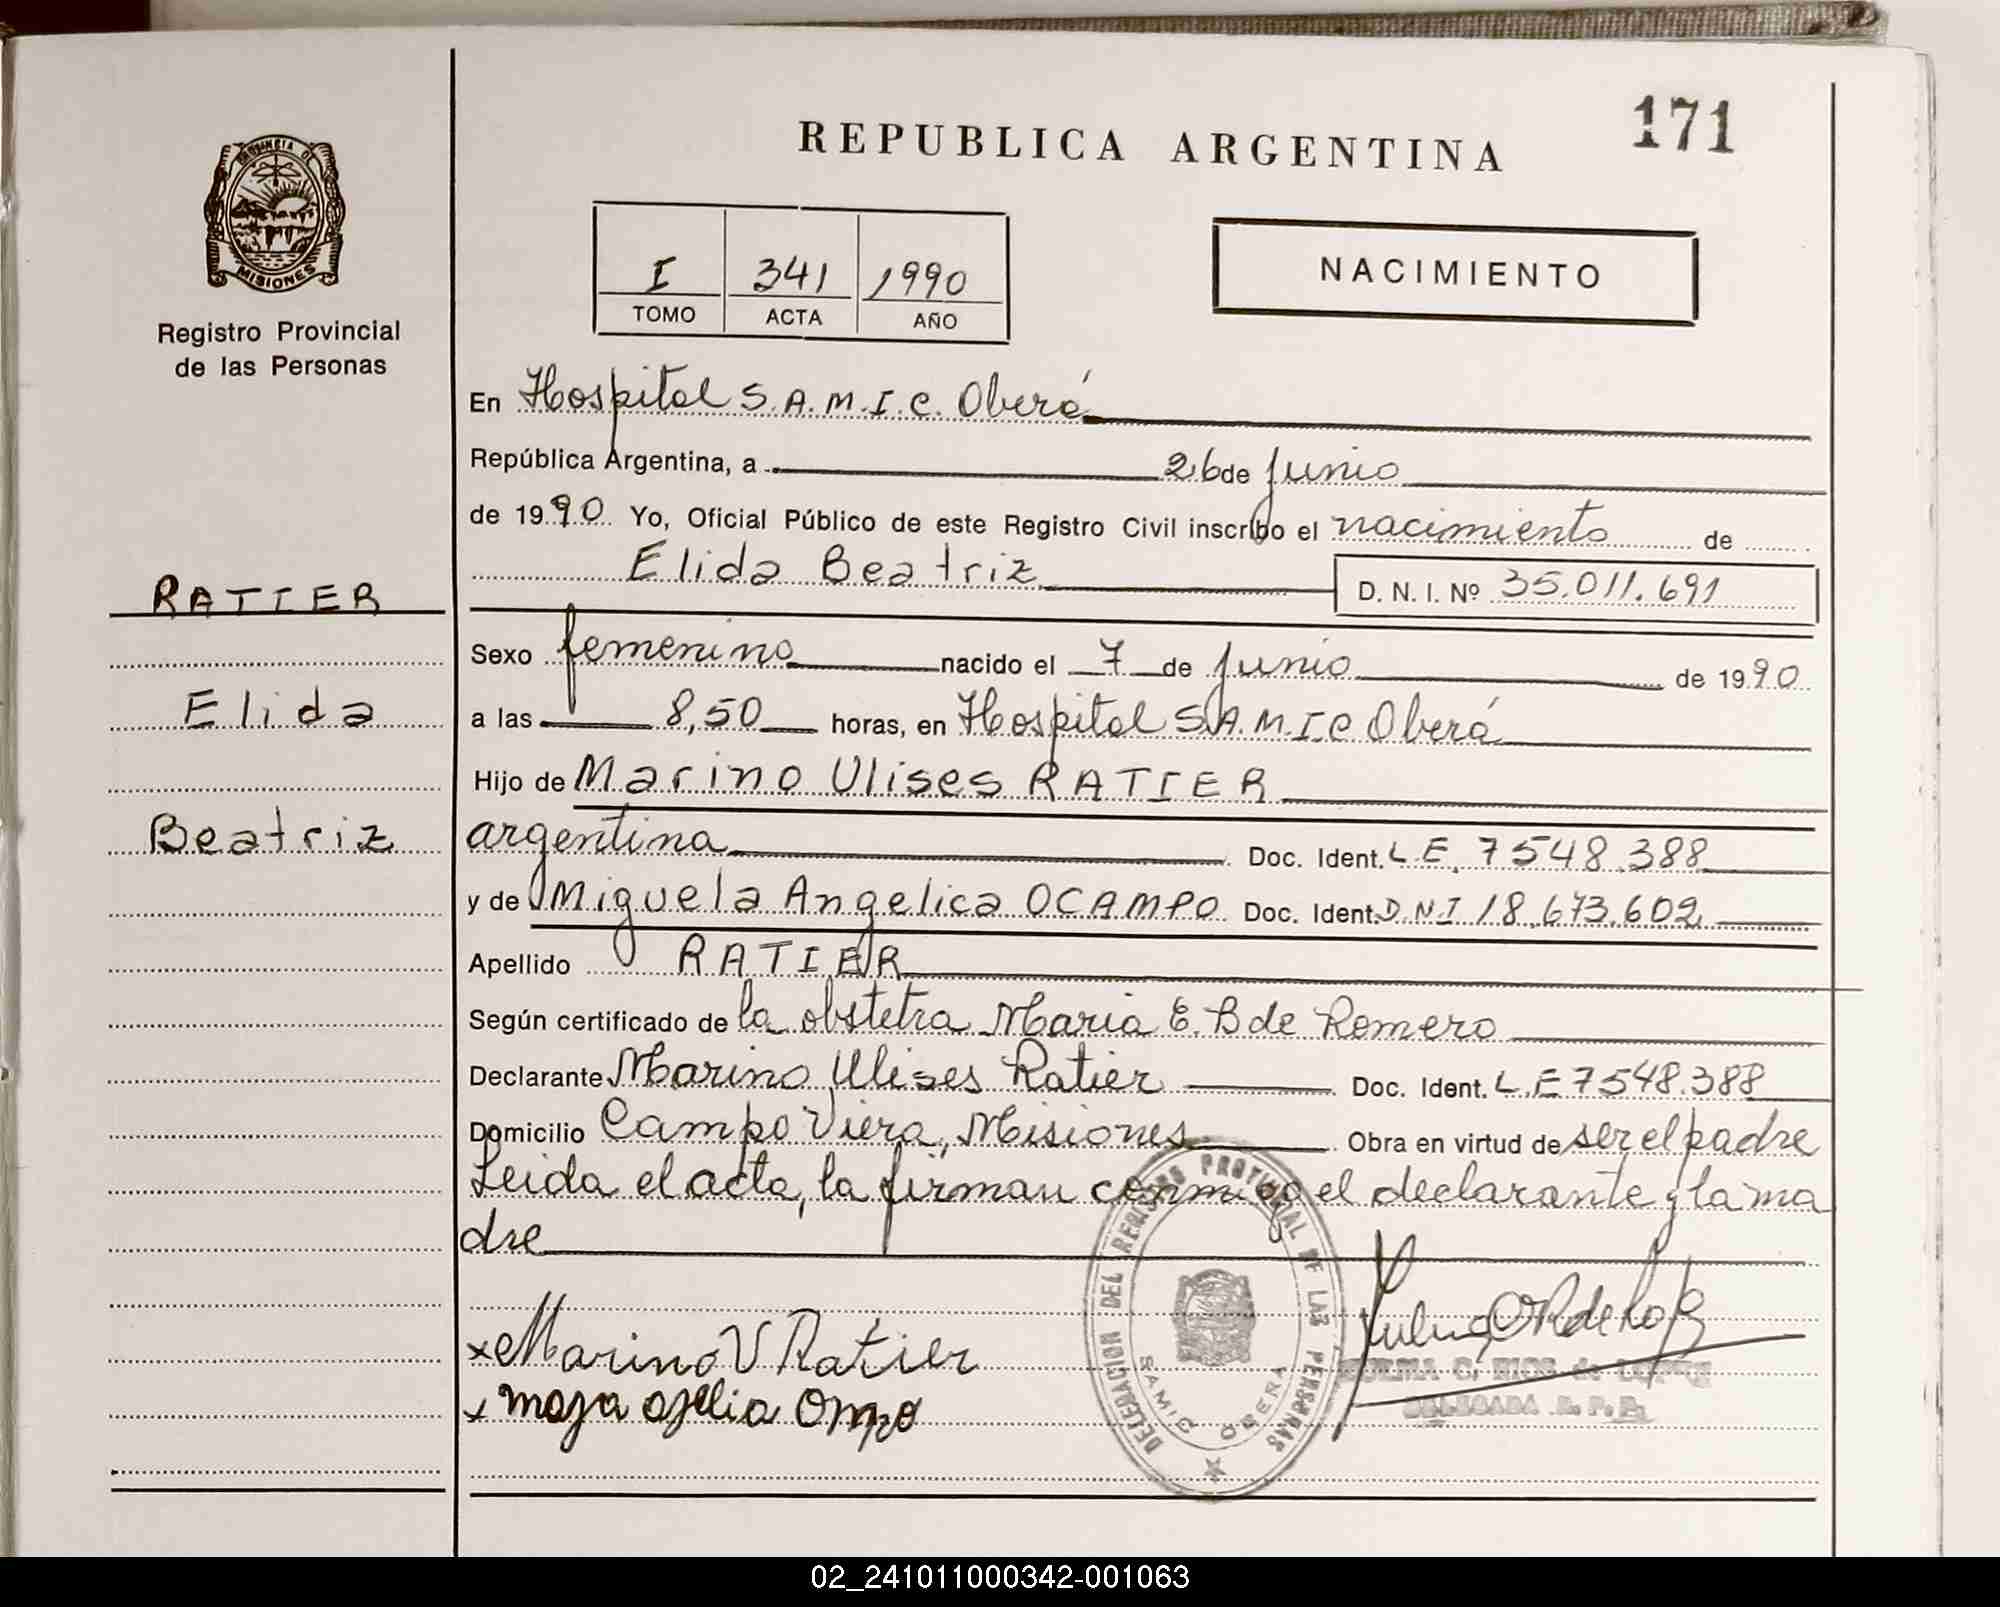 171
REPUBLICA ARGENTINA
PROVINCIA DE
MISIONES
Registro Provincial
de las Personas
I 341 1990
TOMO ACTA AÑO
NACIMIENTO
En Hospital S.A.M.I.C. Oberá
República Argentina, a 26 de Junio
de 1990 Yo, Oficial Público de este Registro Civil inscribo el nacimiento de
Elida Beatriz D. N. I. Nº 35.011.691
RATIER
Sexo femenino nacido el 7 de Junio de 1990
Elida
a las 8,50 horas, en Hospital S.A.M.I.C Oberá
Hijo de Marino Ulises RATIER
Beatriz
argentina Doc. Ident. L.E. 7548.388
y de Miguela Angelica OCAMPO Doc. Ident. D.N.I 18.673.602
Apellido RATIER
Según certificado de la obstetra Maria E. B de Romero
Declarante Marino Ulises Ratier Doc. Ident. L.E 7548.388
Domicilio Campo Viera, Misiones Obra en virtud de ser el padre
Leida el acta, la firman conmigo el declarante y la ma
dre
DELEGACION DEL REGISTRO PROVINCIAL DE LAS PERSONAS
SAMIC OBERA
x Marino U Ratier
x
C. RIOS de
DELEGADA R. P. P.
02_241011000342-001063